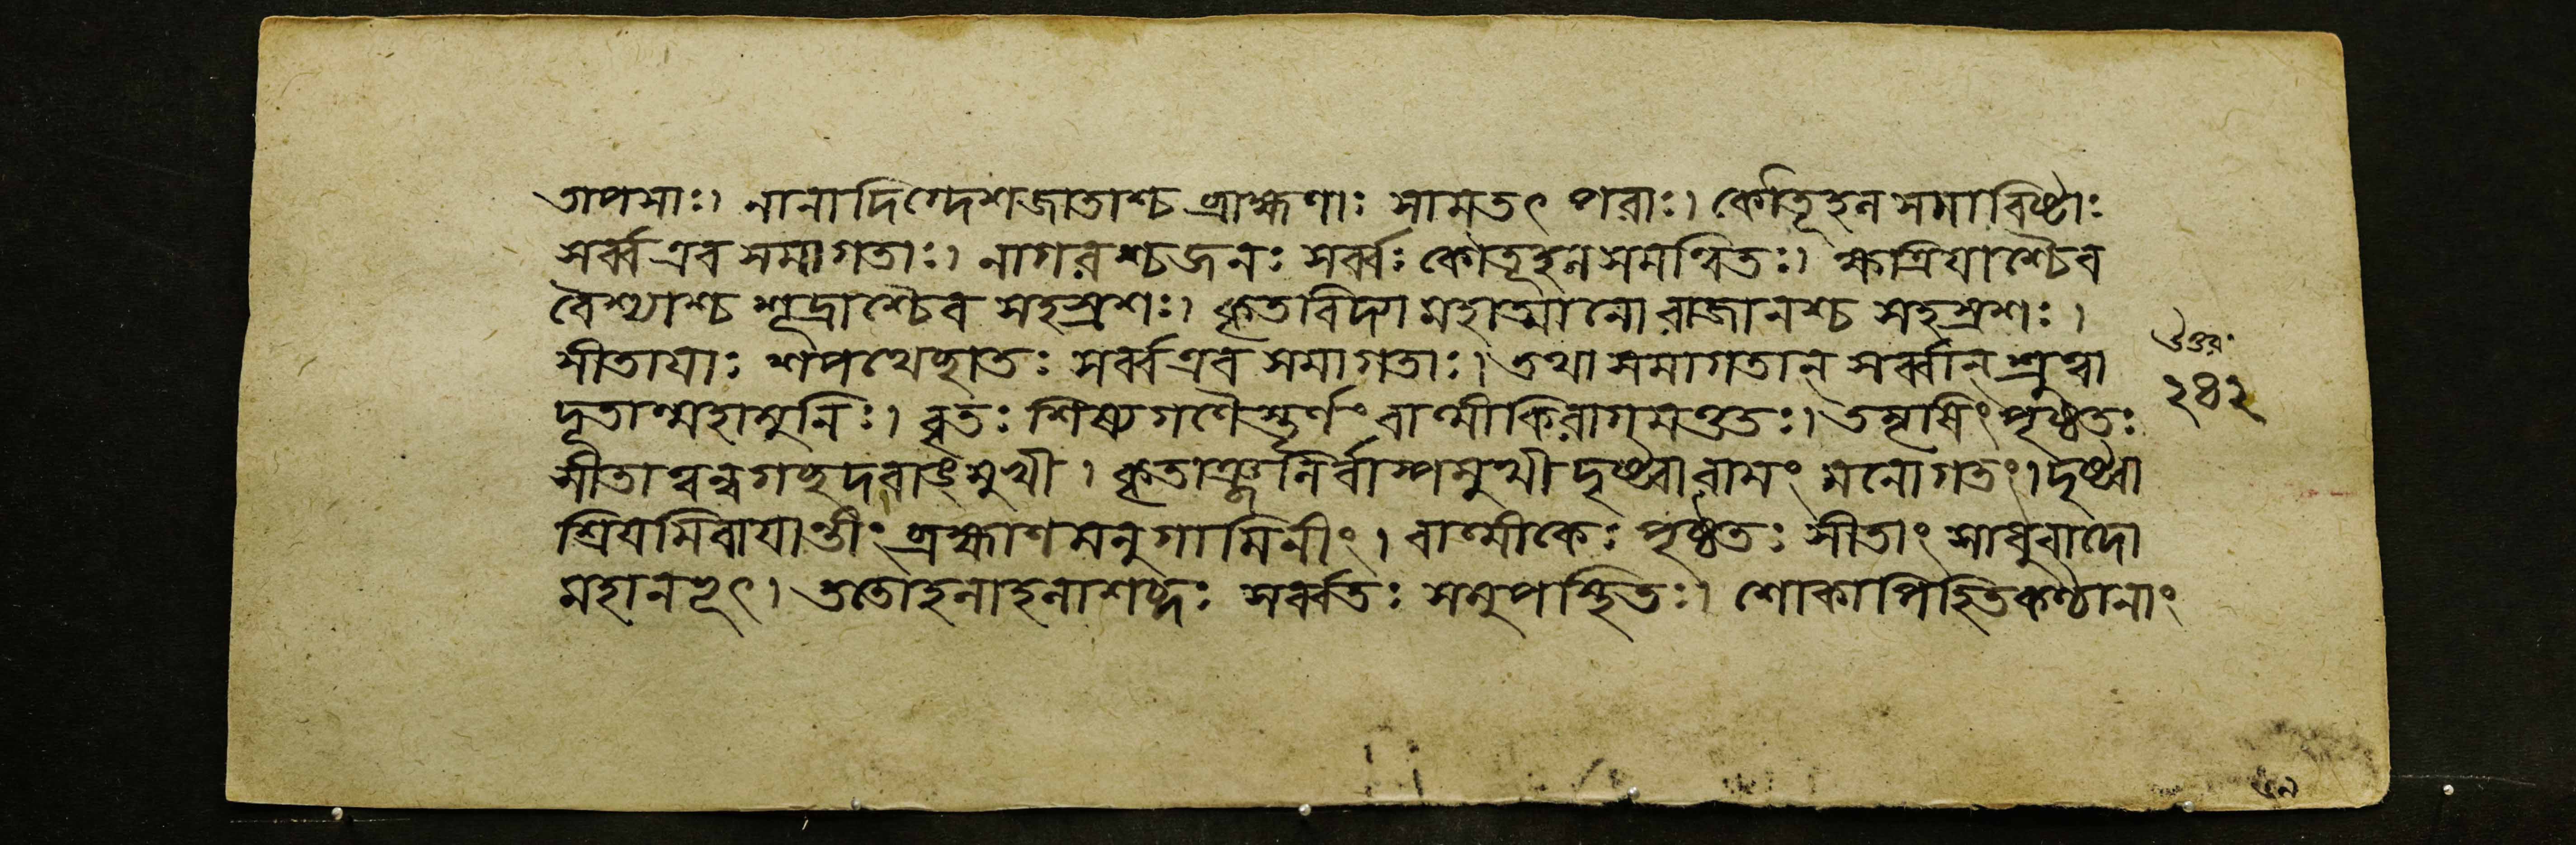 তাপসাঃ। নানাদিগ্দেশজাতাশ্চ ব্রাহ্মণাঃ সামতৎ পরাঃ। কৌতূহল সমাবিষ্টাঃ
সর্ব্ব এব সমাগতাঃ। নাগরশ্চ জনঃ সর্ব্বঃ কৌতূহল সমন্বিতঃ। ক্ষত্রিযাশ্চৈব
বৈশ্যাশ্চ শূদ্রাশ্চৈব সহস্রশঃ। কৃতাবিদ্যা মহাত্মানো রাজানশ্চ সহস্রশঃ।
সীতাযাঃ শপথেহাতঃ সর্ব্ব এব সমাগতাঃ। তথা সমাগতান্ সর্ব্বান্ শ্রুত্বা
দূতান্মহামুনিঃ। বৃতঃ শিষ্যগণৈস্তূর্ণং বাল্মীকিরাগমত্ততঃ। তমৃষিং পৃষ্ঠতঃ
সীতান্বন্বগচ্ছদবাঙ্মুখী। কৃতাঞ্জলির্বাষ্পমুখী দৃষ্ট্বা রামং মনোগতং। দৃষ্ট্বা
শ্রিযমিবাযান্তীং ব্রহ্মাণমনুগামিনীং। বাল্মীকেঃ পৃষ্ঠতঃ সীতাং সাধুবাদো
মহানভূৎ। ততো হলাহলাশব্দঃ সর্ব্বতঃ সমুপস্থিতঃ। শোকাপিহিতকণ্ঠানাং
উত্তর
২৪২